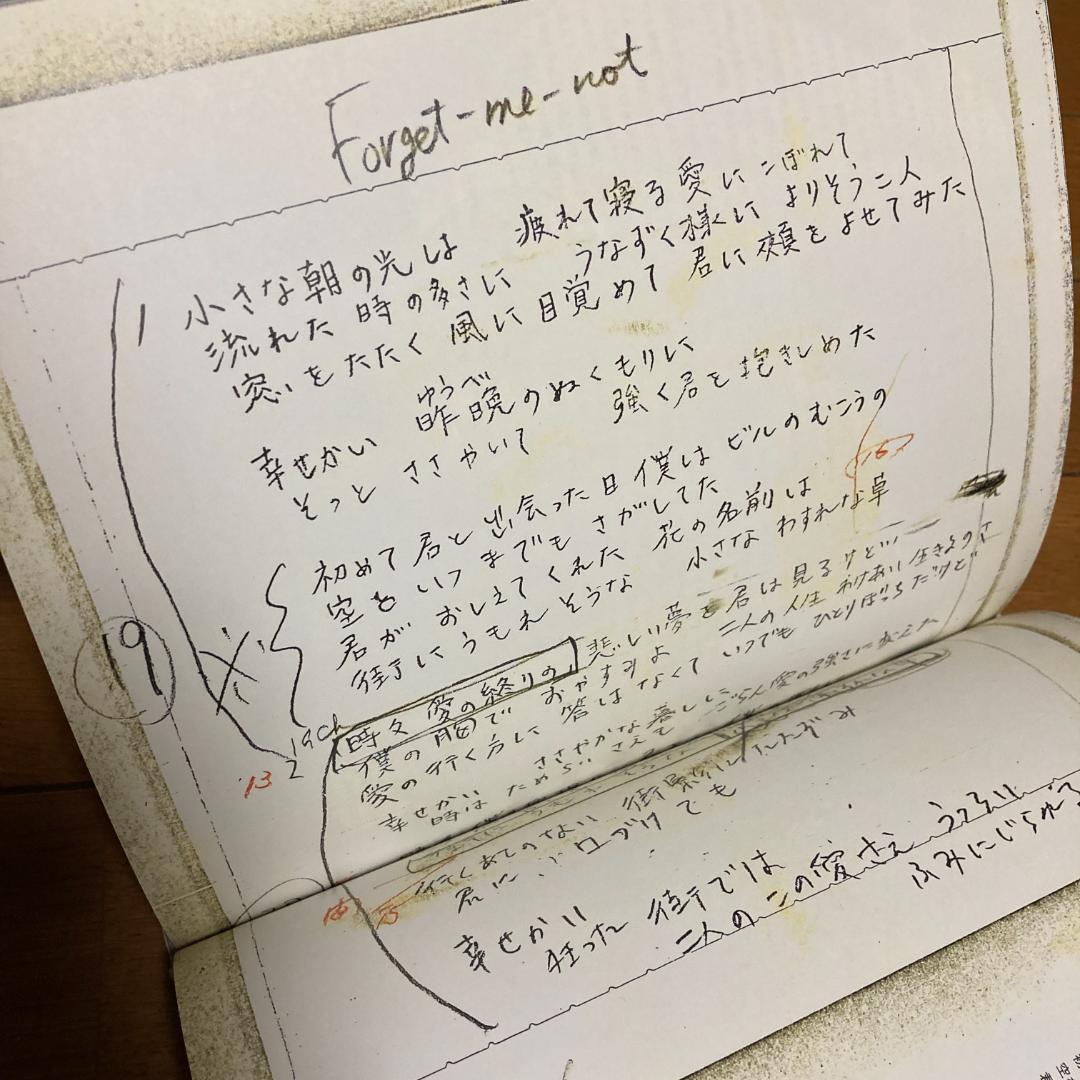 Forget-me-not
小さな朝の光は 疲れて寝る愛にこぼれて
流れた時の多さに うなずく様によりそう二人
窓をたたく風に目覚めて 君に頬をよせてみた
ゆうべ
幸せかい 昨晩のぬくもりに
そっと ささやいて 強く君を抱きしめた
初めて君と出会った日 僕はビルのむこうの
空をいつまでもさがしてた
16
君が おしえてくれた 花の名前は
街にうもれそうな 小さな わすれな草
19
19ch
時々愛の終りの 悲しい夢を君は見るけど
13
2
僕の胸で おやすみよ 二人の人生 わけあい生きるのさ
愛の行く方に 答はなくて いつでも ひとりぼっちだけど
幸せかい ささやかな暮しに
時は ためらいさえも ごらん愛の強さに変えた
行くあてのない 街景に たたずみ
君に 口づけても
幸せかい
狂った 街では
二人のこの愛さえ うつろい
ふみにじられて